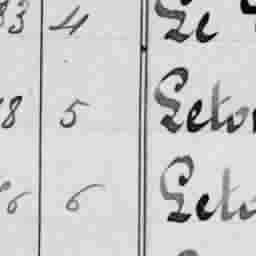 33 4 Le
8 5 Leto
6 6 Leto